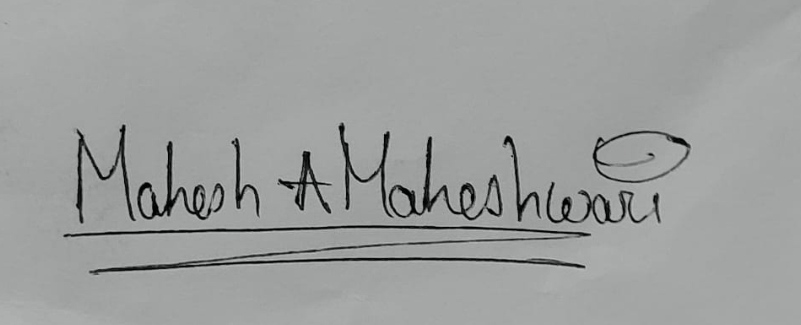 Mahesh A Maheshwari